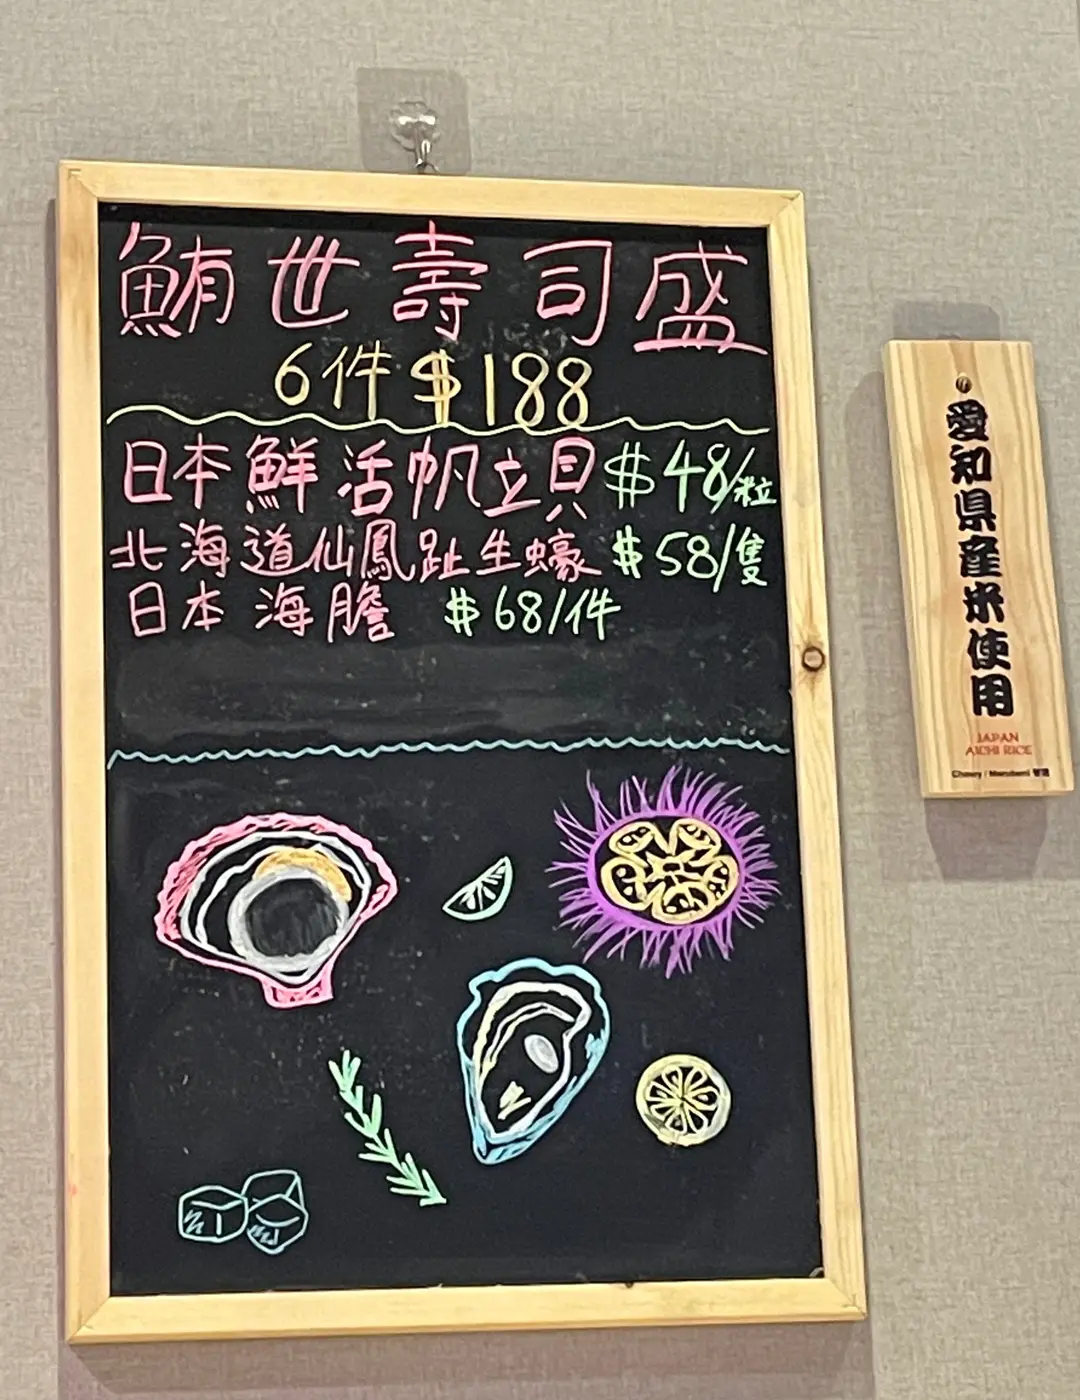 鮪世壽司盛
6件 $188
日本鮮活帆立貝 $48/粒
北海道仙鳳趾生蠔 $58/隻
日本海膽 $68/件
愛知県産米使用
JAPAN
AICHI RICE